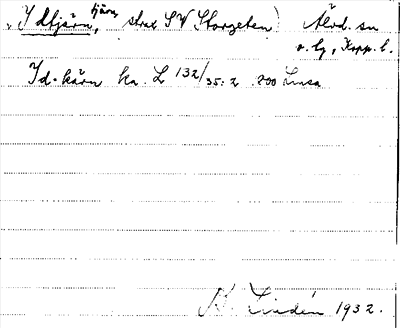 "Idtjärn, tjärn, strax SV Storgeten) Älvd. sn
o. tg, Kopp. l.
Id-kärn ka. L 132/35:2 200 Lusa
B. Lindén 1932.